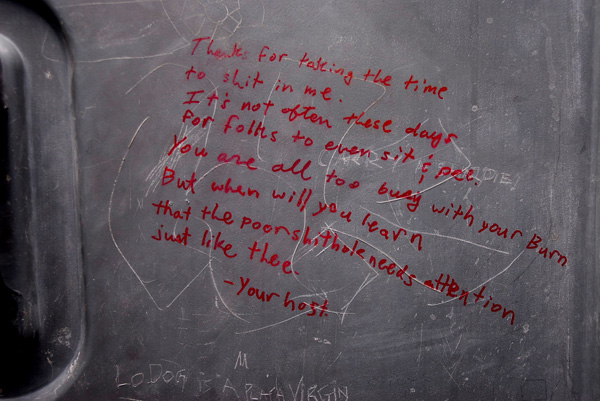 Thanks for taking the time
to shit in me.
It's not often these days
for folks to even sit & pee.
You are all too busy with your Burn
But when will you learn
that the poor shithole needs attention
just like thee.
-Your host
M
LO DOG IS A VIRGIN